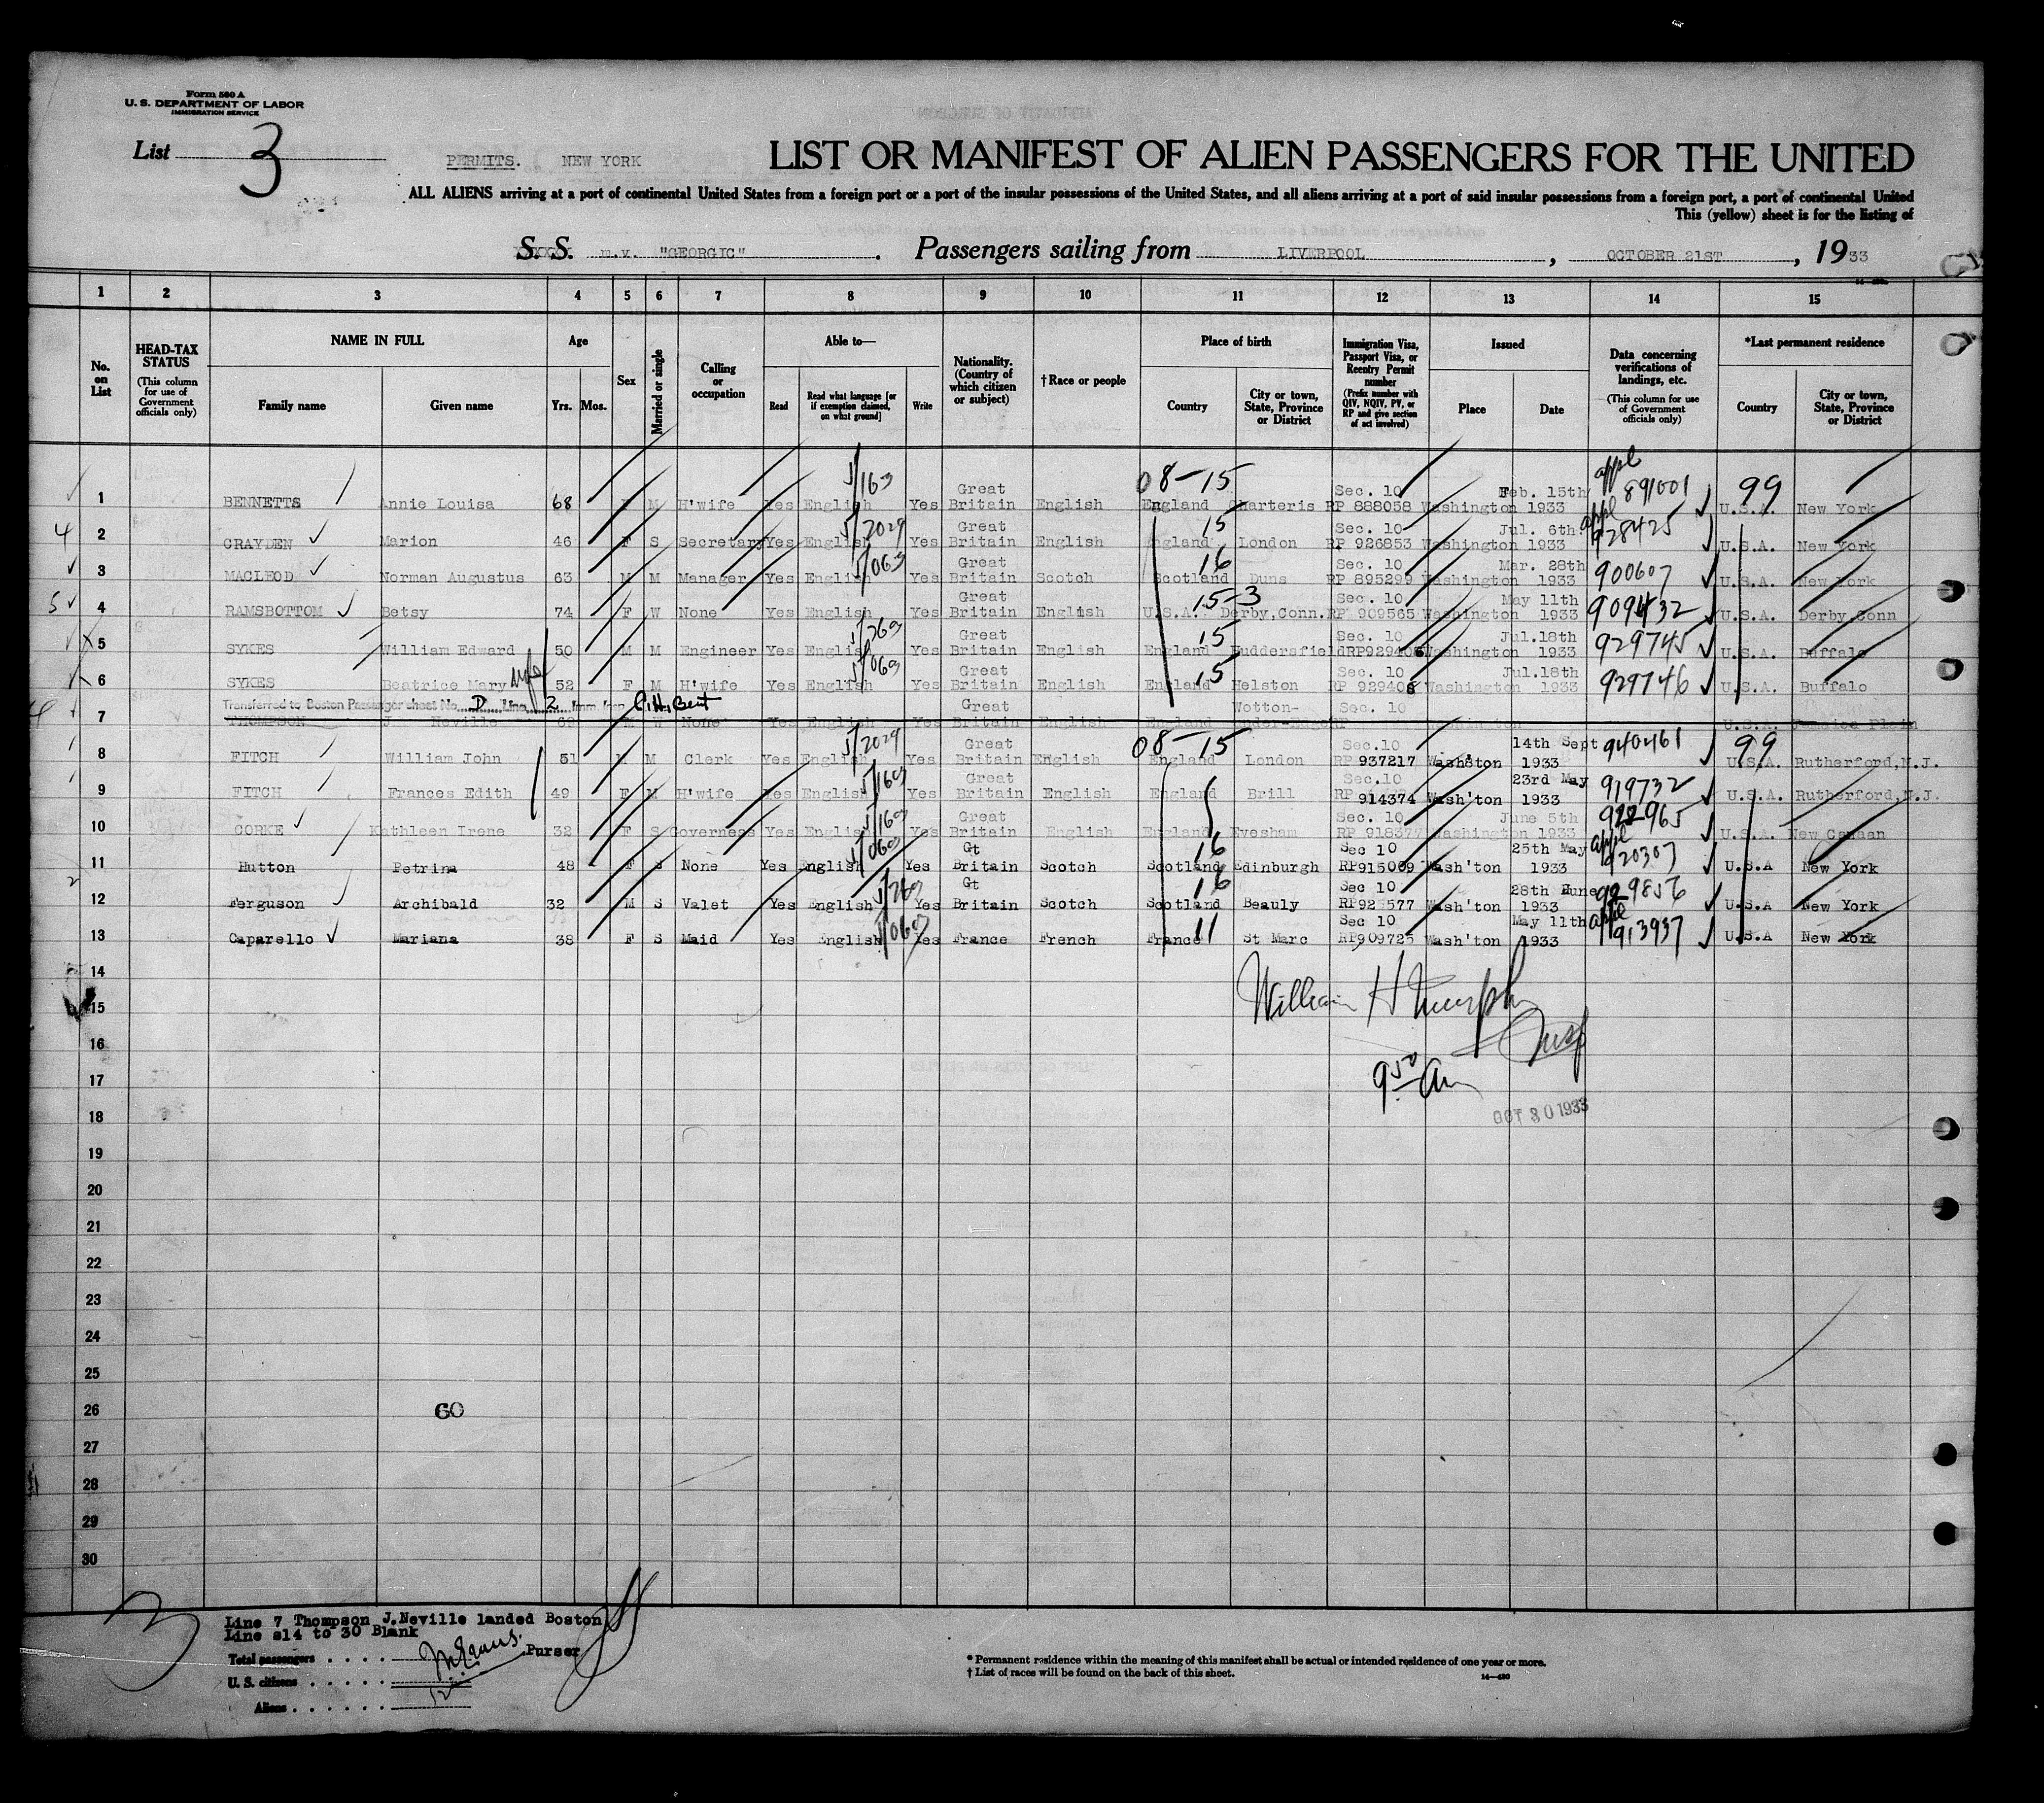 Form 500 A
U. S. DEPARTMENT OF LABOR
IMMIGRATION SERVICE
List 3
PERMITS. NEW YORK
LIST OR MANIFEST OF ALIEN PASSENGERS FOR THE UNITED
ALL ALIENS arriving at a port of continental United States from a foreign port or a port of the insular possessions of the United States, and all aliens arriving at a port of said insular possessions from a foreign port, a port of continental United
This (yellow) sheet is for the listing of
S. S. m.v. "GEORGIC". Passengers sailing from LIVERPOOL, OCTOBER 21ST, 1933
1 2 3 4 5 6 7 8 9 10 11 12 13 14 15
No. on List
HEAD-TAX STATUS (This column for use of Government officials only)
NAME IN FULL
Family name Given name
Age
Yrs. Mos.
Sex
Married or single
Calling or occupation
Able to—
Read Read what language [or if exemption claimed, on what ground] Write
Nationality. (Country of which citizen or subject)
†Race or people
Place of birth
Country City or town, State, Province or District
Immigration Visa, Passport Visa, or Reentry Permit number (Prefix number with QIV, NQIV, PV, or RP and give section of act involved)
Issued
Place Date
Data concerning verifications of landings, etc. (This column for use of Government officials only)
*Last permanent residence
Country City or town, State, Province or District
1 BENNETTS Annie Louisa 68 F M H'wife Yes English 5/163 Yes Great Britain English 08-15 England Charteris Sec. 10 RP 888058 Washington Feb. 15th 1933 appl 891001 99 U.S.A. New York
4 2 CRAYDEN Marion 46 F S Secretary Yes English 5/2029 Yes Great Britain English 15 England London Sec. 10 RP 926853 Washington Jul. 6th. 1933 appl 928425 U.S.A. New York
3 MACLEOD Norman Augustus 63 M M Manager Yes English 5/063 Yes Great Britain Scotch 16 Scotland Duns Sec. 10 RP 895299 Washington Mar. 28th 1933 900607 U.S.A. New York
5 4 RAMSBOTTOM Betsy 74 F W None Yes English Yes Great Britain English 15-3 U.S.A. Derby,Conn. Sec. 10 RP 909565 Washington May 11th 1933 909432 U.S.A. Derby,Conn
5 SYKES William Edward 50 M M Engineer Yes English 5/263 Yes Great Britain English 15 England Huddersfield Sec. 10 Washington Jul.18th 1933 929745 U.S.A. Buffalo
6 SYKES Beatrice Mary wife 52 F M H'wife Yes English 5/063 Yes Great Britain English 15 England Helston Sec. 10 RP 929408 Washington Jul.18th 1933 929746 U.S.A. Buffalo
Transferred to Boston Passenger sheet No. D Line 2 Imm. Insp. C.H. Bent
7 THOMPSON J. Neville M W None Yes English Yes Great Britain English England Wotton- Sec. 10 Washington U.S.A. Jamaica Plain
8 FITCH William John 51 M M Clerk Yes English 5/2029 Yes Great Britain English 08-15 England London Sec.10 RP 937217 Washston 14th Sept 1933 940461 99 U.S.A. Rutherford,N.J.
9 FITCH Frances Edith 49 F M H'wife Yes English 5/163 Yes Great Britain English England Brill Sec.10 RP 914374 Wash'ton 23rd May 1933 919732 U.S.A. Rutherford,N.J.
10 CORKE Kathleen Irene 32 F S Governess Yes English 5/163 Yes Great Britain English England Evesham Sec. 10 RP 918377 Washington June 5th 1933 922965 U.S.A. New Canaan
11 Hutton Petrina 48 F S None Yes English 5/063 Yes Gt Britain Scotch 16 Scotland Edinburgh Sec 10 RP915009 Wash'ton 25th May 1933 appl 920307 U.S.A New York
12 Ferguson Archibald 32 M S Valet Yes English 5/263 Yes Gt Britain Scotch 16 Scotland Beauly Sec 10 RP925577 Wash'ton 28th June 1933 929856 U.S.A New York
13 Caparello Mariana 38 F S Maid Yes English 5/063 Yes France French France 11 St Marc Sec 10 RP909725 Wash'ton May 11th 1933 appl 913937 U.S.A New York
14
15
16
17
18
19
20
21
22
23
24
25
26
27
28
29
30
William H Murphy
Insp
9 50 Am
OCT 30 1933
60
3
Line 7 Thompson J.Neville landed Boston
Line s14 to 30 Blank
Total passengers Purser
U. S. citizens
Aliens
* Permanent residence within the meaning of this manifest shall be actual or intended residence of one year or more.
† List of races will be found on the back of this sheet.
14—430